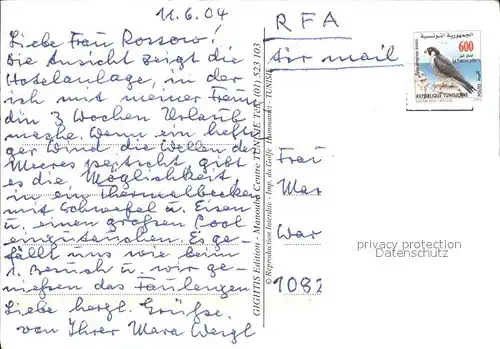 11.6.04
Liebe Frau Rossow!
Die Ansicht zeigt die
Hotelanlage, in der
ich mit meiner Freun
din 3 Wochen Urlaub
mache. Wenn ein hefti-
ger Wind die Wellen des
Meeres peitscht, gibt
es die Möglichkeit,
in ein Thermalbecken
mit Schwefel u. Eisen
u. einen großen Pool
einzutauchen. Es ge-
fällt uns wie beim
1. Besuch u. wir ge-
nießen das Faulenzen
Liebe herzl. Grüße
von Ihrer Mara Weigl
GIGHTIS Edition - Manouba Centre TUNISIE Tél. (01) 523 103
© Reproduction Interdite - Imp. du Golfe Hammamet - TUNISIE
RFA
Air mail
الجمهورية التونسية
600
Le Faucon pèlerin
REPUBLIQUE TUNISIENNE
Frau
Mar
War
1082
privacy protection
Datenschutz